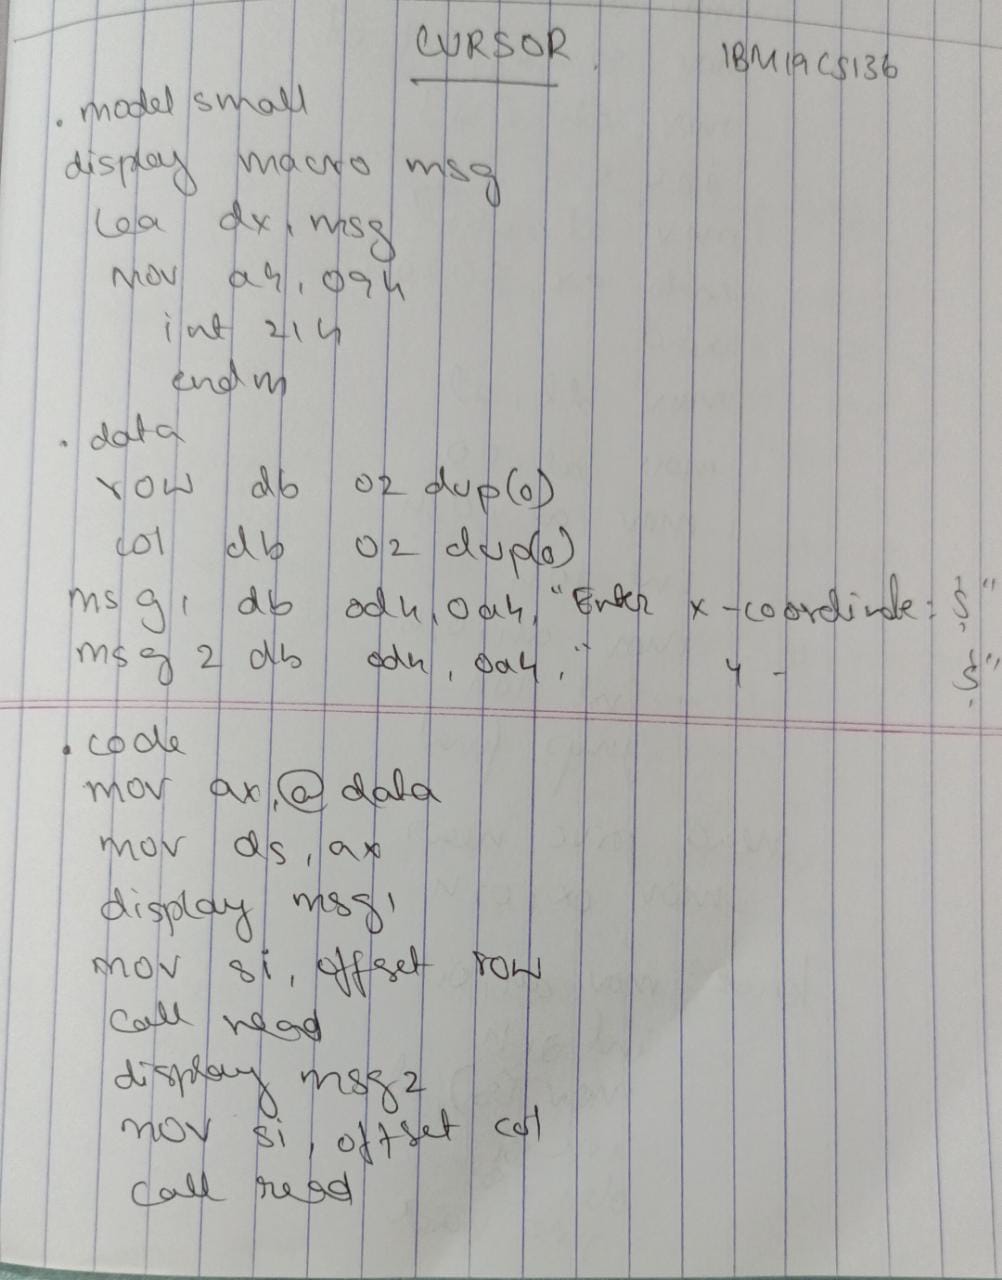 CURSOR
1BM19CS136
.model small
display macro msg
lea dx, msg
mov ah, 09h
int 21h
endm
.data
row db 02 dup(0)
col db 02 dup(0)
msg1 db 0dh, 0ah, "Enter x-coordinate: $"
msg2 db 0dh, 0ah, " y - $"
.code
mov ax, @data
mov ds, ax
display msg1
mov si, offset row
call read
display msg2
mov si, offset col
call read